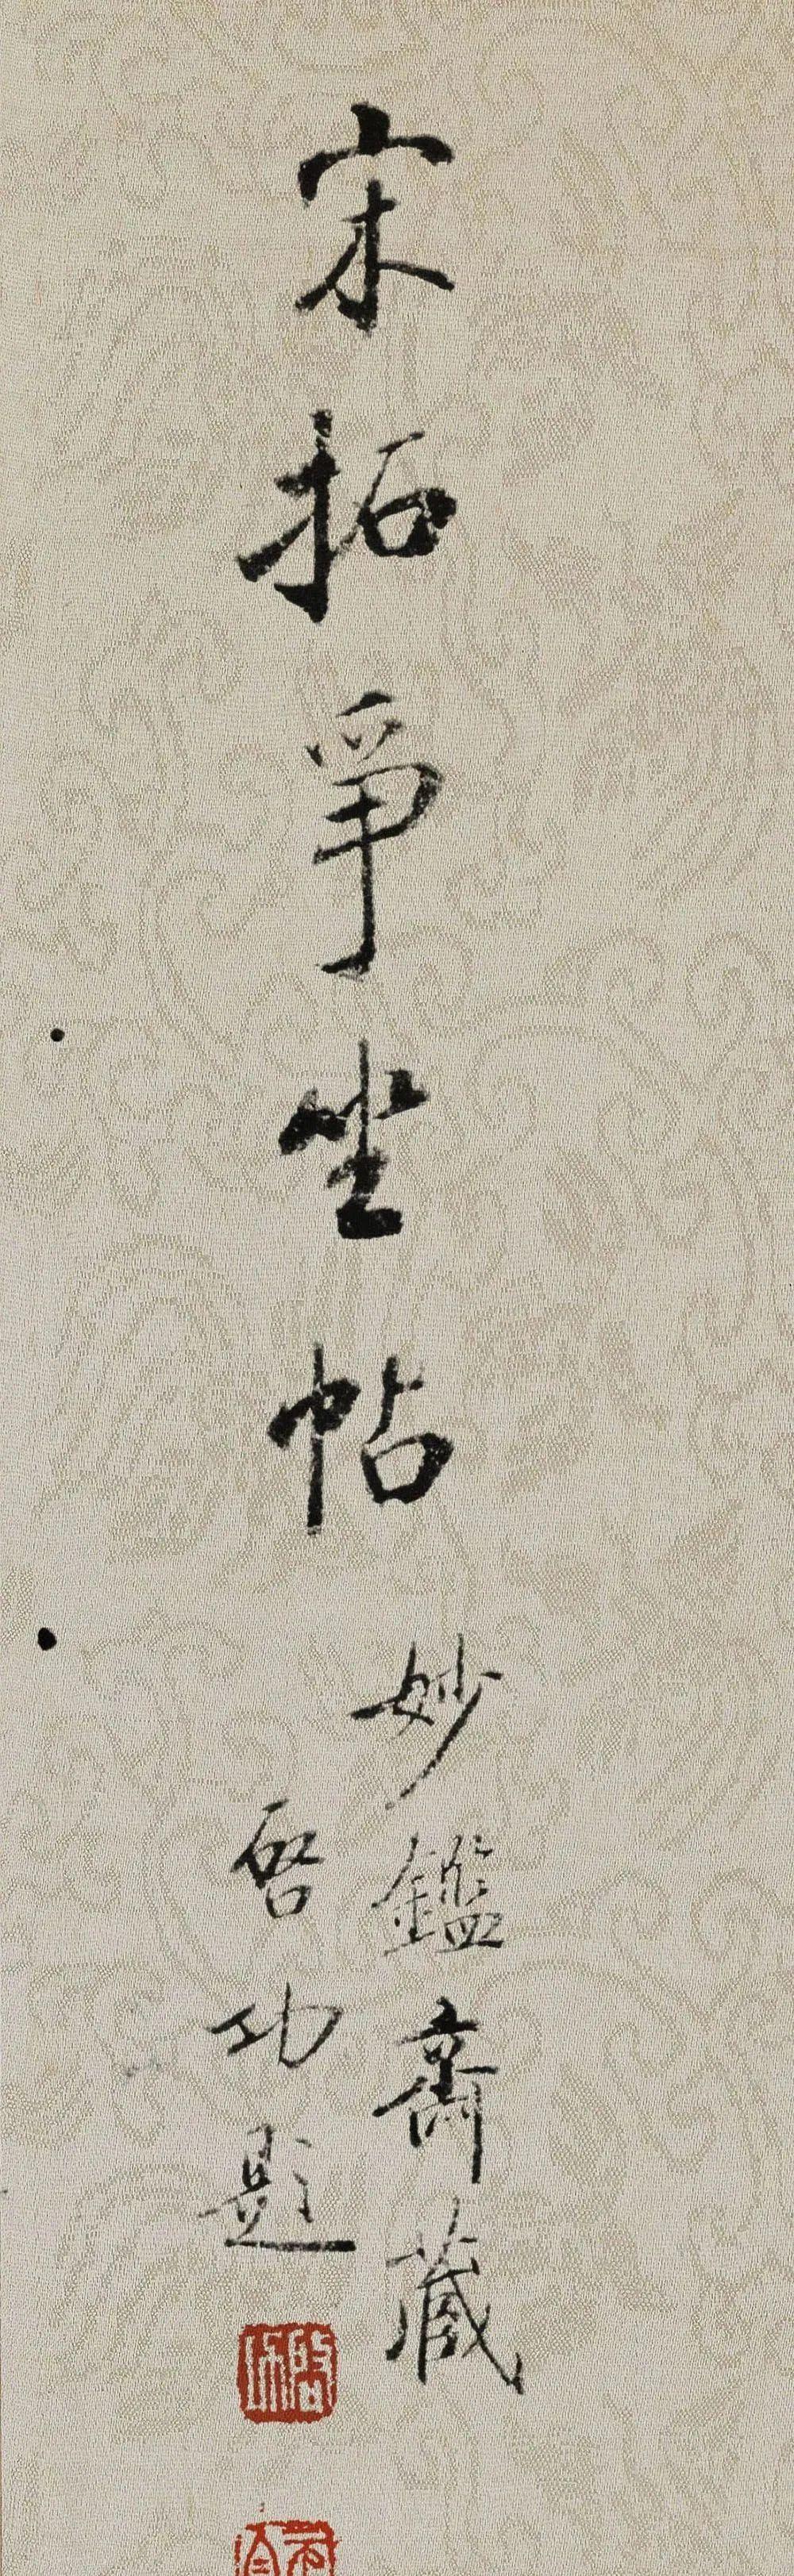 宋拓爭坐帖
妙鑑齋藏
启功題